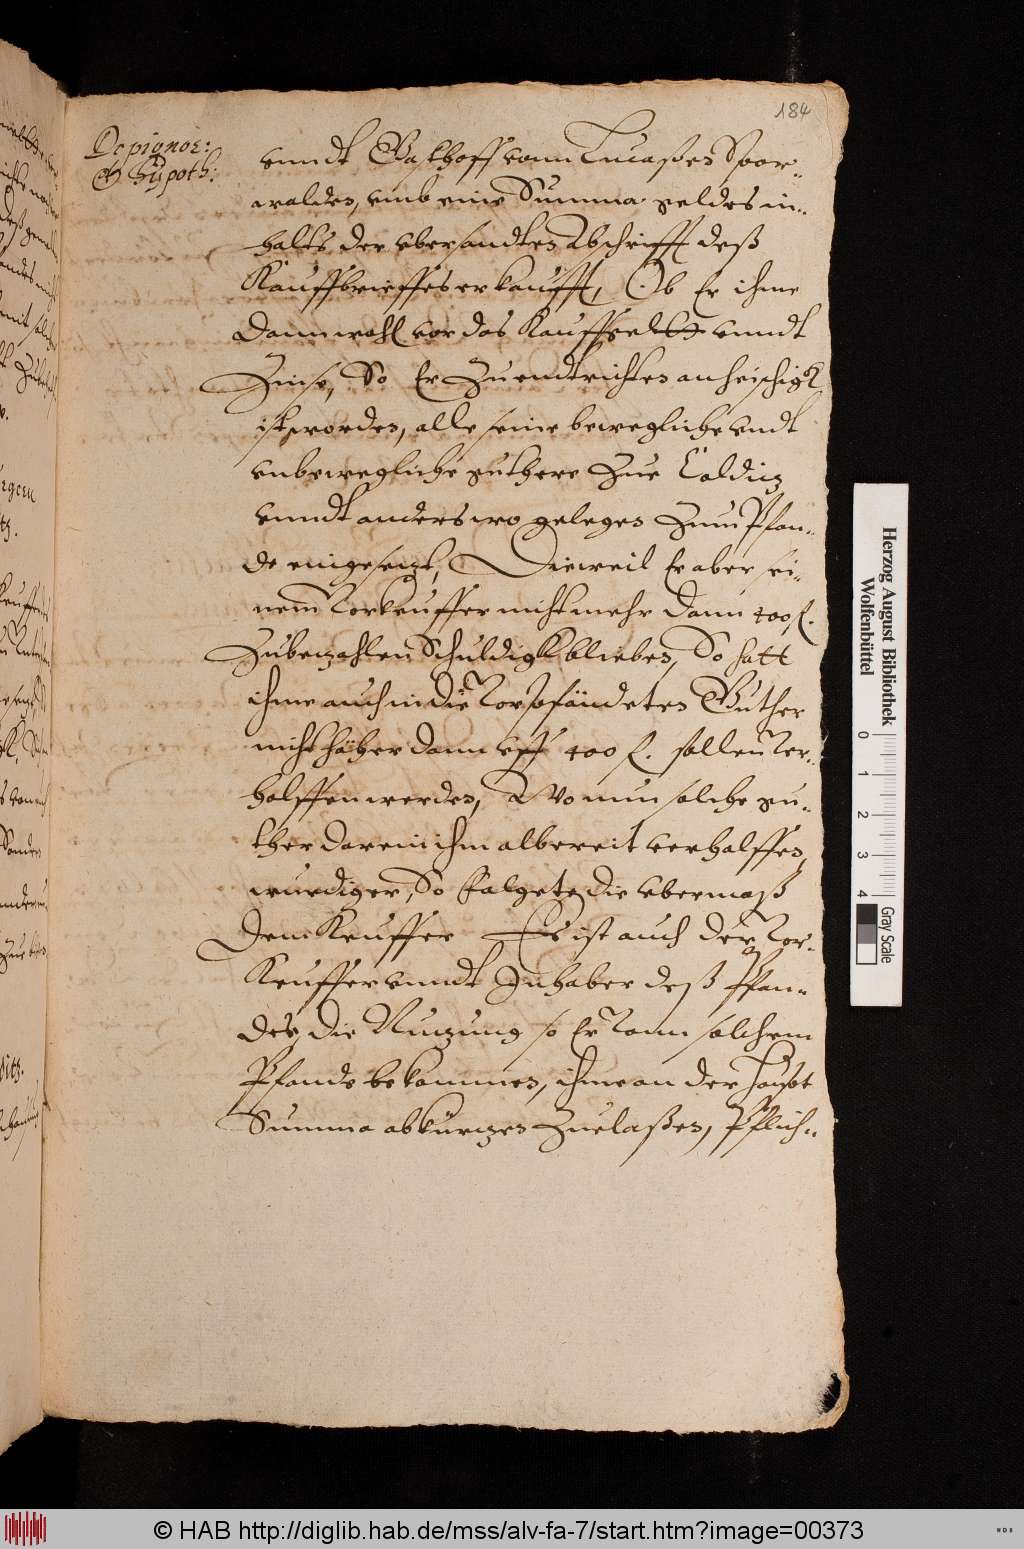 184
De pignor:
& Hypoth:
vnndt Gasthoff vonn Lucaßen Spor-
walden, vmb eine Summa geldes in-
halts der vbersandten Abschrifft deß
Kauffbrieffes erkaufft, Ob Er ihme
dann wohl vor das Kauffgeldt vnndt
Zinse, So Er Zuendtrichten anheischigk
ist worden, alle seine bewegliche vndt
vnbewegliche guthere Zue Colditz
vnndt anderswo gelegen Zum Pfan-
de eingesetzt, Dieweil Er aber sei-
nem Vorkeuffer nicht mehr dann 400 fl.
Zubezahlen Schuldigk blieben, So hatt
ihme auch in die Vorpfändeten Güther
nicht höher dann vff 400 fl. sollen Ver-
holffen werden, Wo nun solche gu-
ther darein ihm albereit verholffen,
wurdiger, So folgete die vbermaß
dem Keuffer Es ist auch der Vor-
Keuffer vnndt Inhaber deß Pfan-
des, die Nutzung so Er Vonn solchem
Pfande bekommen, ihme an der Haupt
Summa abkürtzen Zuelaßen, Pflich-
Herzog August Bibliothek
Wolfenbüttel
0 1 2 3 4
Gray Scale
© HAB http://diglib.hab.de/mss/alv-fa-7/start.htm?image=00373